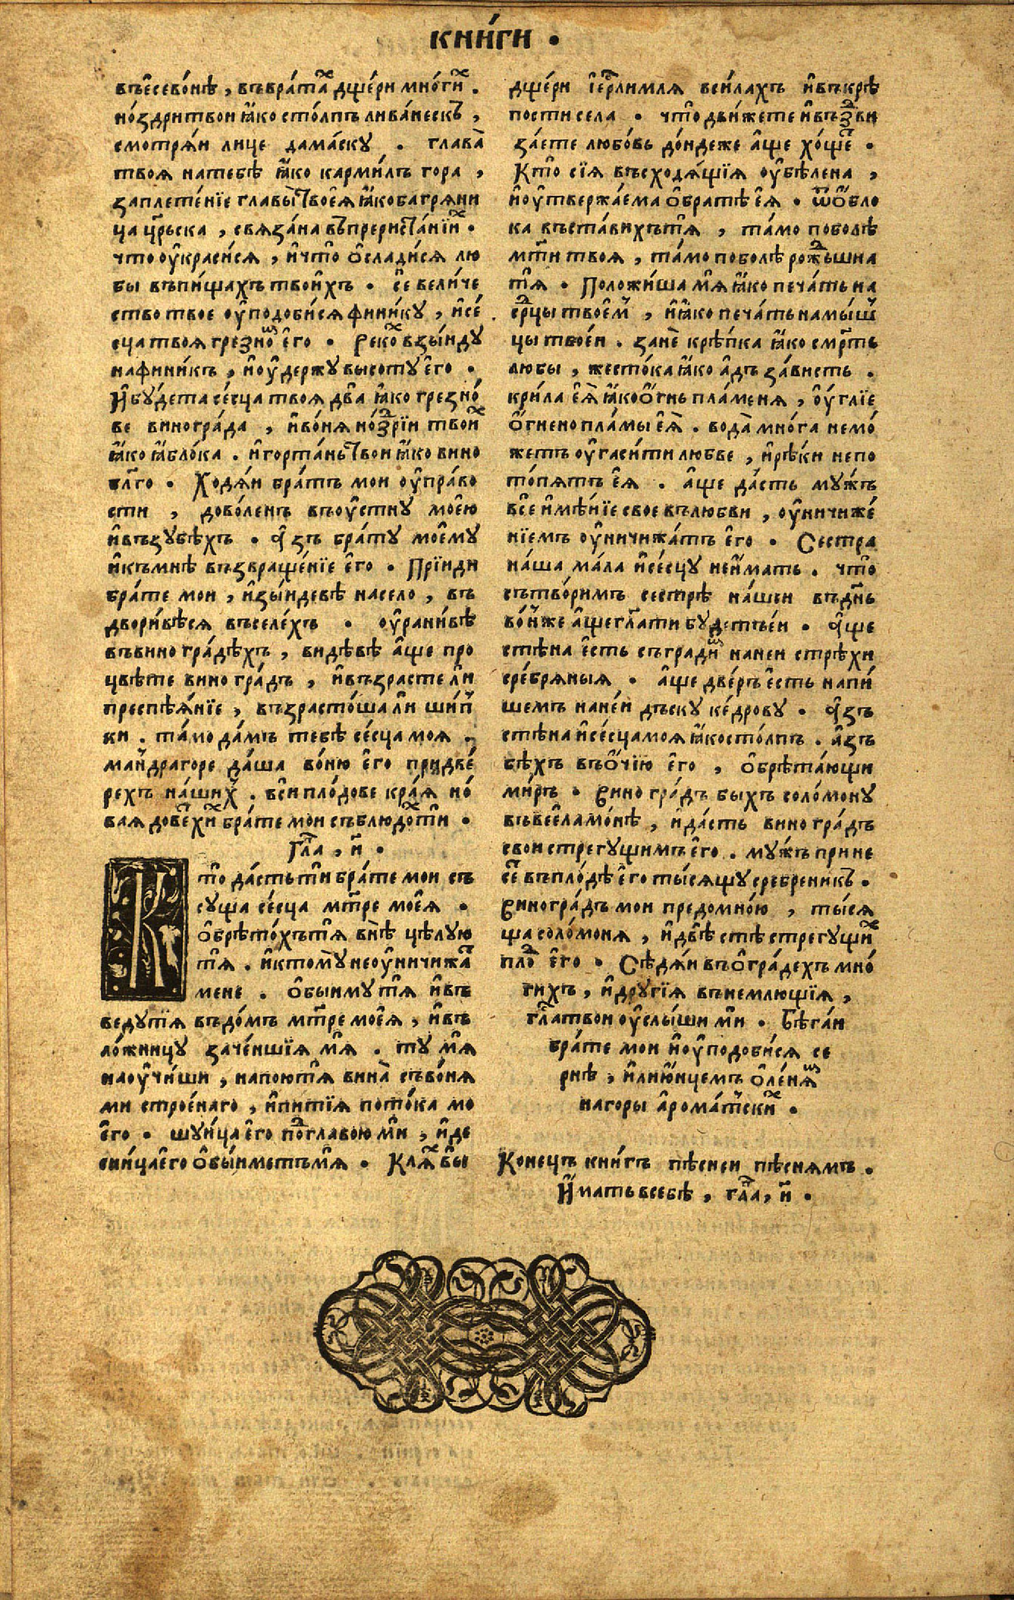 книги .
въесевонѣ , въврата дщери многи .
ноздри твои ꙗко столпъ ливанескъ ,
смотряи лице дамаску . глава
твоя на тебѣ ꙗко кармилъ гора ,
заплетенїе главы твоеѧ ꙗко багряни
ца црьска , связана въ преристанїи .
что украсися , и что ѡсладися лю
бы въ пищахъ твоихъ . се величе
ство твое уподобися финику , и сес
ца твоя грезно его . рекох взыиду
на финикъ , и удержу высоту его .
И будета сесца твоя два ꙗко грезно
ве винограда , и воня ноздрїи твоих
ꙗко яблока . и гортань твои ꙗко вино
благо . Ходяи братъ мои управо
сти , доволенъ въ устну моею
и въ зубѣхъ . Азъ брату моему
и къ мнѣ възвращенїе его . Прїиди
брате мои , изыидевѣ на село , въ
дворивѣся въ селехъ . уранивѣ
въ виноградѣхъ , видѣвѣ аще про
цвѣте виноградъ , и възрасте ли
преспѣянїе , възрастоша ли шип
ки . тамо дамъ тебѣ сесца моя .
мандрагоре даша воню его при две
рехъ нашихъ . вси плодове края но
вая довехи брате мои съблюдо ти .
Гла , и .
Кто дасть ти брате мои съ
суща сесца мтре моея .
обрѣтохъ тя внѣ цѣлую
тя . и ктому неуничижа
мене . обыиму тя и въ
веду тя въ домъ мтре моея , и въ
ложницу заченшїя мя . ту мя
научиши , напою тя вина съ воня
ми строенаго , и питїя потока мо
его . шуица его под главою ми , и де
сница его обыиметъ мя . Клях вы
дщери їерлимля в силахъ и въ крѣ
пости села . что движете и въздви
заете любовь дондеже аще хоще .
Кто сїя въсходящїя убѣлена ,
и утвержаема о братѣ ея . ѿ обло
ка въставихъ тя , тамо поболѣ
мти твоя , тамо поболѣ рождьшиа
тя . Положи ша мя ꙗко печать на
србцы твоем , и ꙗко печать на мыш
цы твоеи . зане крѣпка ꙗко смрть
любы , жестока ꙗко адъ зависть .
крила ея ꙗко огнь пламеня , углїе
огнено пламы ея . вода многа немо
жетъ угасити любве , и рѣки непо
топятъ ея . аще дасть мужъ
все имѣнїе свое въ любви , уничиже
нїемъ уничижатъ его . Сестра
наша мала и сесцу неимать . что
сътворимъ сестрѣ нашеи въ днь
вонже аще глати будетъ еи . Аще
стѣна есть съградим на неи стрѣхи
сребряныя . аще дверъ есть напи
шемъ на неи дъску кедрову . Азъ
стѣна и сесца моя ꙗко столпъ . азъ
бѣхъ въ очїю его , обрѣтающи
миръ . виноградъ быхъ соломону
въ веелaмонѣ , и дасть виноградъ
свои стрегущимъ его . мужъ прине
се въ плодѣ его тысящу сребреникъ .
виноградъ мои предомною , тыся
ща соломоня , и двѣ стѣ стрегущих
плод его . Сѣдяи въ оградехъ мно
гихъ , и другїя вънемлющїя ,
глa твои услыши ми . Бѣгаи
брате мои и уподобися се
рнѣ , или юнцемъ оленя
на горы ароматски .
Конецъ книгъ пѣсней пѣснямъ .
Имать в себѣ , гла , и .